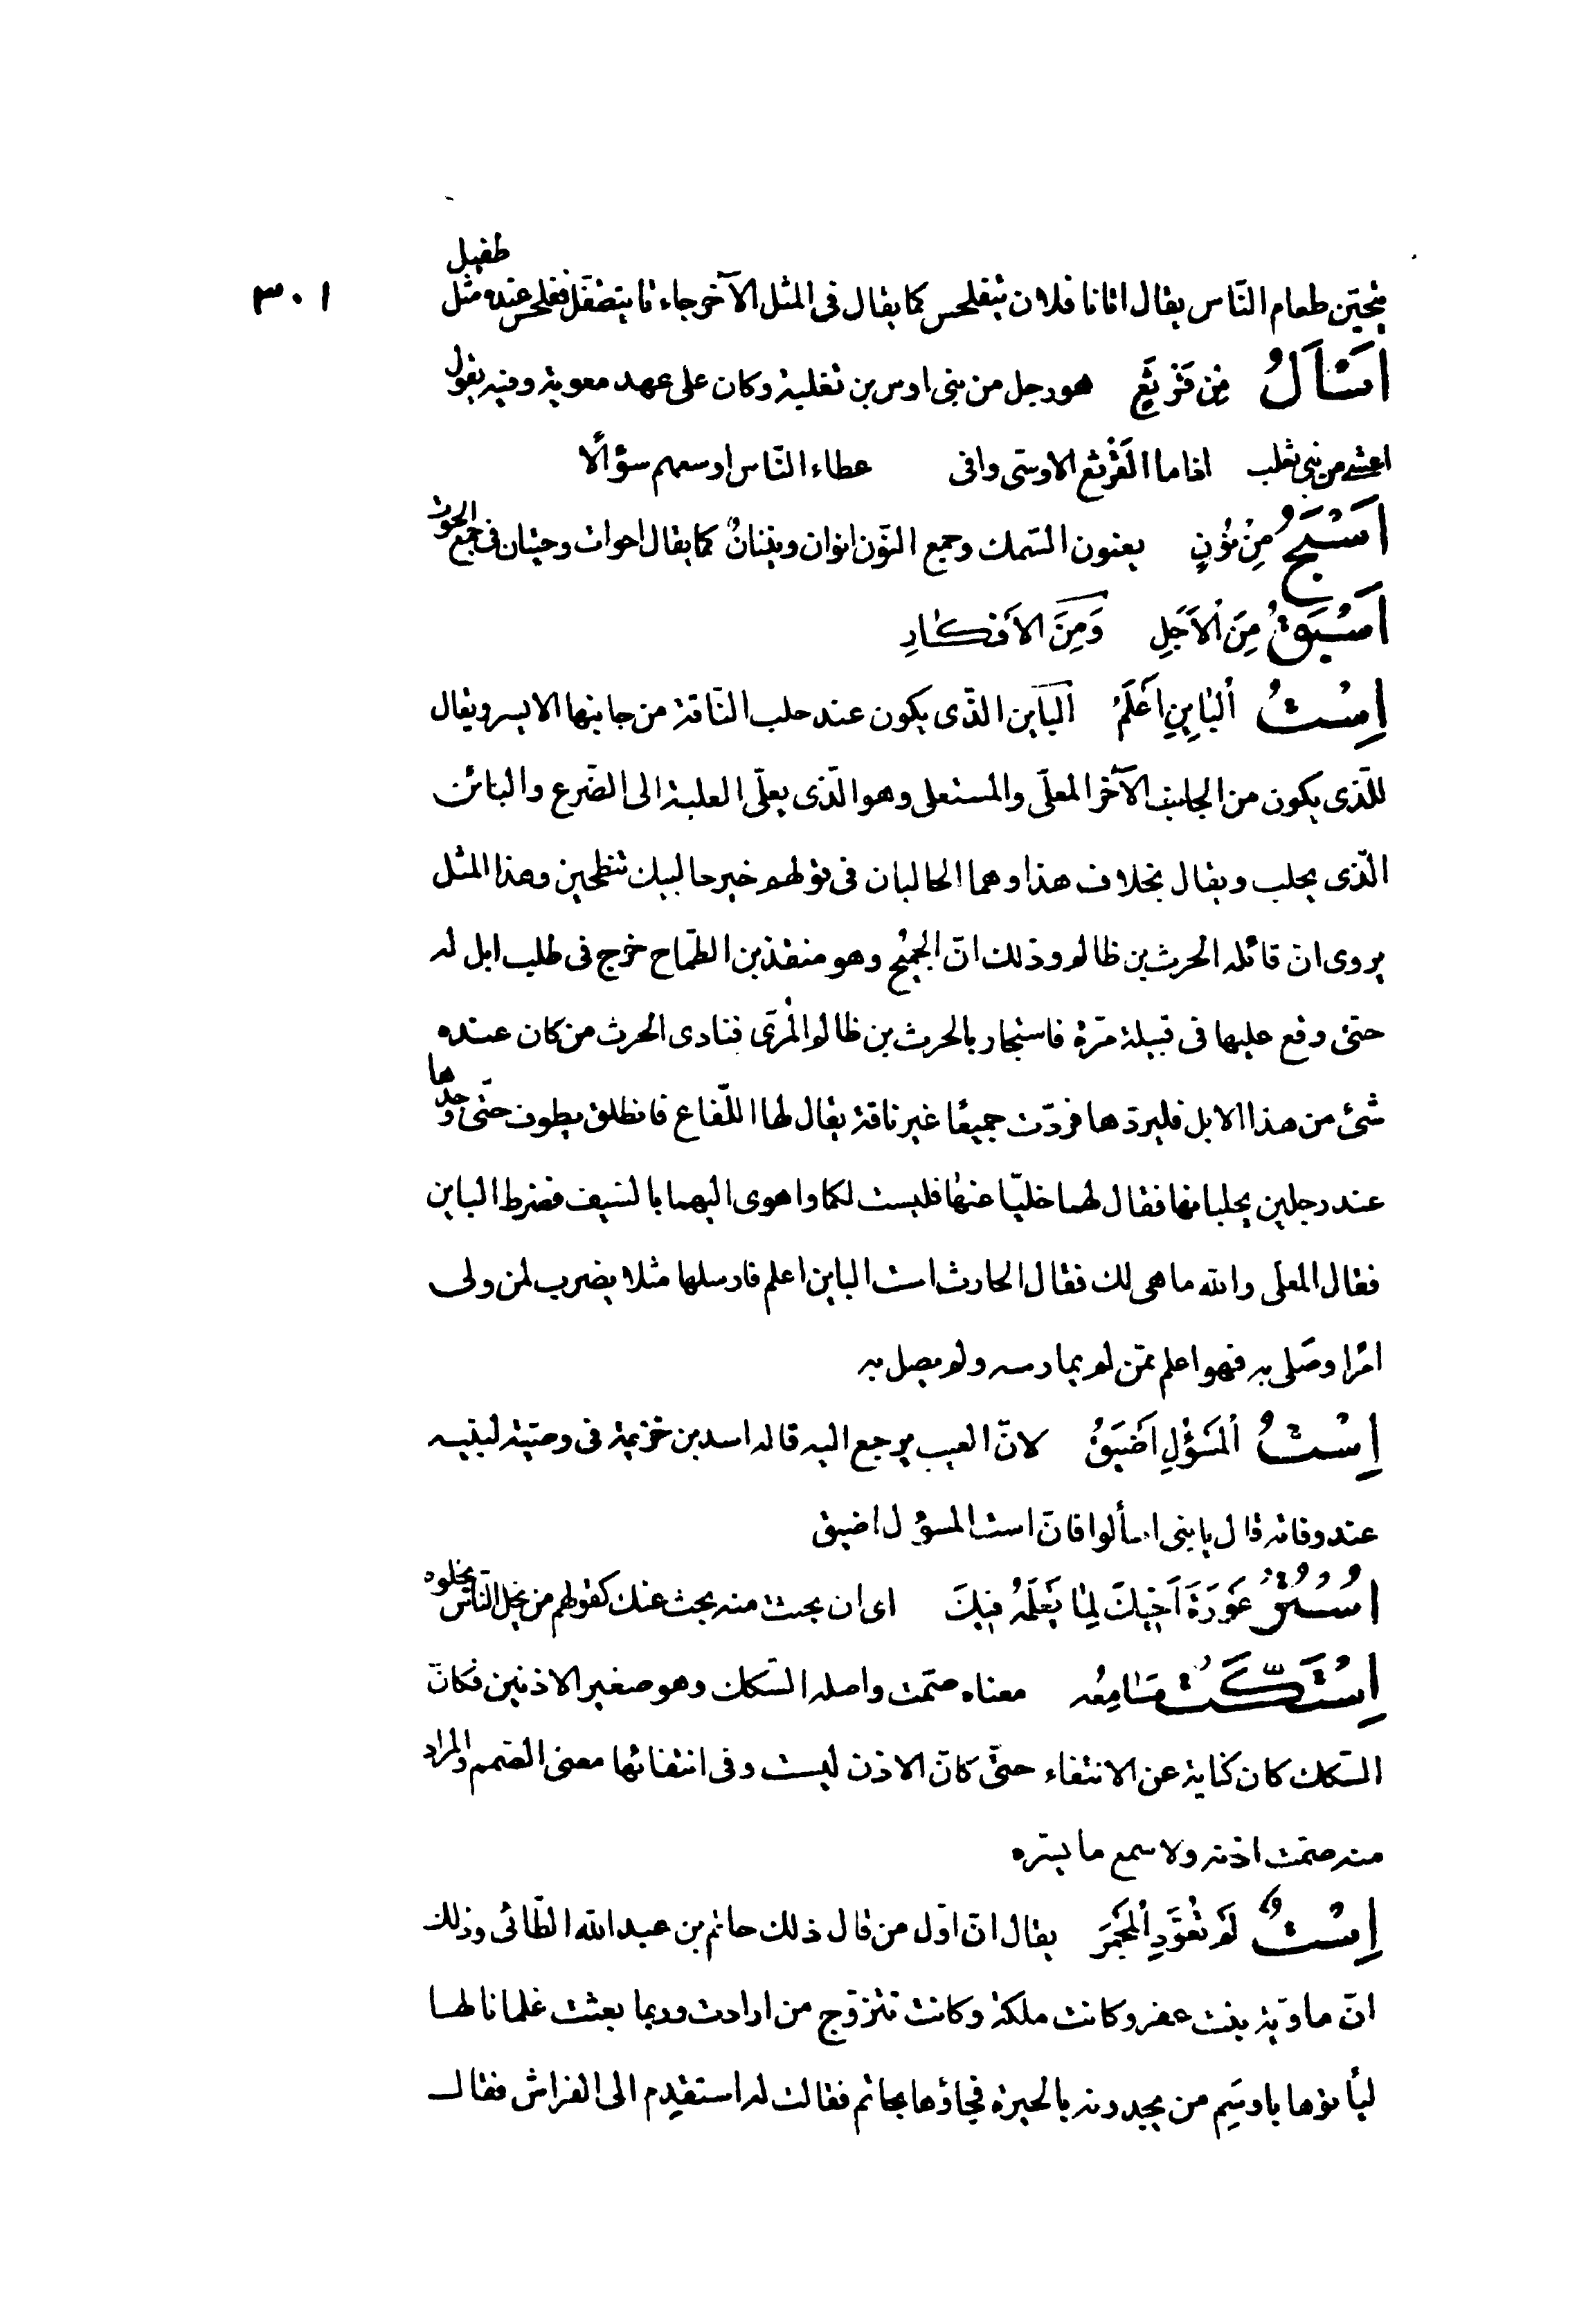 ٣٠١
يتحيّن طعام النّاس يقال اتانا فلان يتفلحس كما يقال فى المثل الآخر جاءنا يتطفّل ففلحس عنده مثل طفيل
اَسْأَلُ مِنْ قَرْثَعٍ هو رجل من بنى اوس بن ثعلبة وكان على عهد معوية وفيه يقول
اعشى من بنى تغلب اذا ما القَرْثع الاوسّى وافى عطاء النّاس اوسعهم سؤالًا
اَسْبَحُ مِنْ نُونٍ يعنون السّمك وجمع النّون انوان ونينانٌ كما يقال احوات وحيتان فى جمع الحوت
اَسْبَقُ مِنَ الْاَجَلِ وَمِنَ الْأَفْكَارِ
اِسْتُ الْبَايِنِ اَعْلَمُ اَلباين الذّى يكون عند حلب النّاقة من جانبها الايسر ويقال
للّذى يكون من الجانب الآخر المعلّى والمستعلى وهو الّذى يعلّى العلبة الى الضّرع والبائن
الّذى يحلب ويقال بخلاف هذا وهما الحالبان فى قولهم خير حالبيك تنطحين وهذا المثل
يروى انّ قائله الحرث بن ظالم وذلك انّ الجُمَيْح وهو منقذ بن الطّماح خرج فى طلب ابل له
حتى وقع عليها فى قبيلة مرّة فاستجار بالحرث بن ظالم الْمرّى فنادى الحرث من كان عنده
شئ من هذا الابل فليردّها فردّت جميعًا غير ناقة يقال لها اللّفاع فانطلق يطوف حتّى وجدها
عند رجلين يحلبانها فقال لهما خليّا عنها فليست لكما واهوى اليهما بالسّيف فضرط الباين
فقال المعلّى والله ما هى لك فقال الحارث است الباين اعلم فارسلها مثلا يضرب لمن ولى
امرًا وصَلى به فهو اعلم ممّن لم يمارسه ولم يصل به
اِسْتُ الْمَسْؤُلِ اَضْيَقُ لانّ العيب يرجع اليه قاله اسد بن خزيمة فى وصيّة لبنيه
عند وفاته قال يا بنى اسألوا فانّ است المسؤل اضيق
اُسْتُرْ عَوْرَةَ اَخِيكَ لِمَا يَعْلَمُهُ فِيكَ اى ان بحثت عنه بحث عنك كقولهم من نجل النّاس نجلوه
اِسْتَكَّتْ مَسَامِعُه معناه صمّت واصله السّكك وهو صغير الاذنين فكانّ
السّكك كان كناية عن الانتفاء حتّى كانّ الاذن ليست وفى انتفائها معنى الصّمم والمراد
منه صمّت اذنه ولا سمع ما يسرّه
اِسْتٌ لَمْ تُعَوَّدِ الْمِجْمَرَ يقال انّ اوّل من قال ذلك حاتم بن عبد الله الطّائى وذلك
انّ ماويّة بنت عفزر كانت ملكة وكانت تتزوّج من ارادت وربما بعثت غلمانا لهـا
ليأتوها باوسَم من يجدونه بالحيرة فجاؤها بحاتم فقالت له استقدم الى الفراش فقال